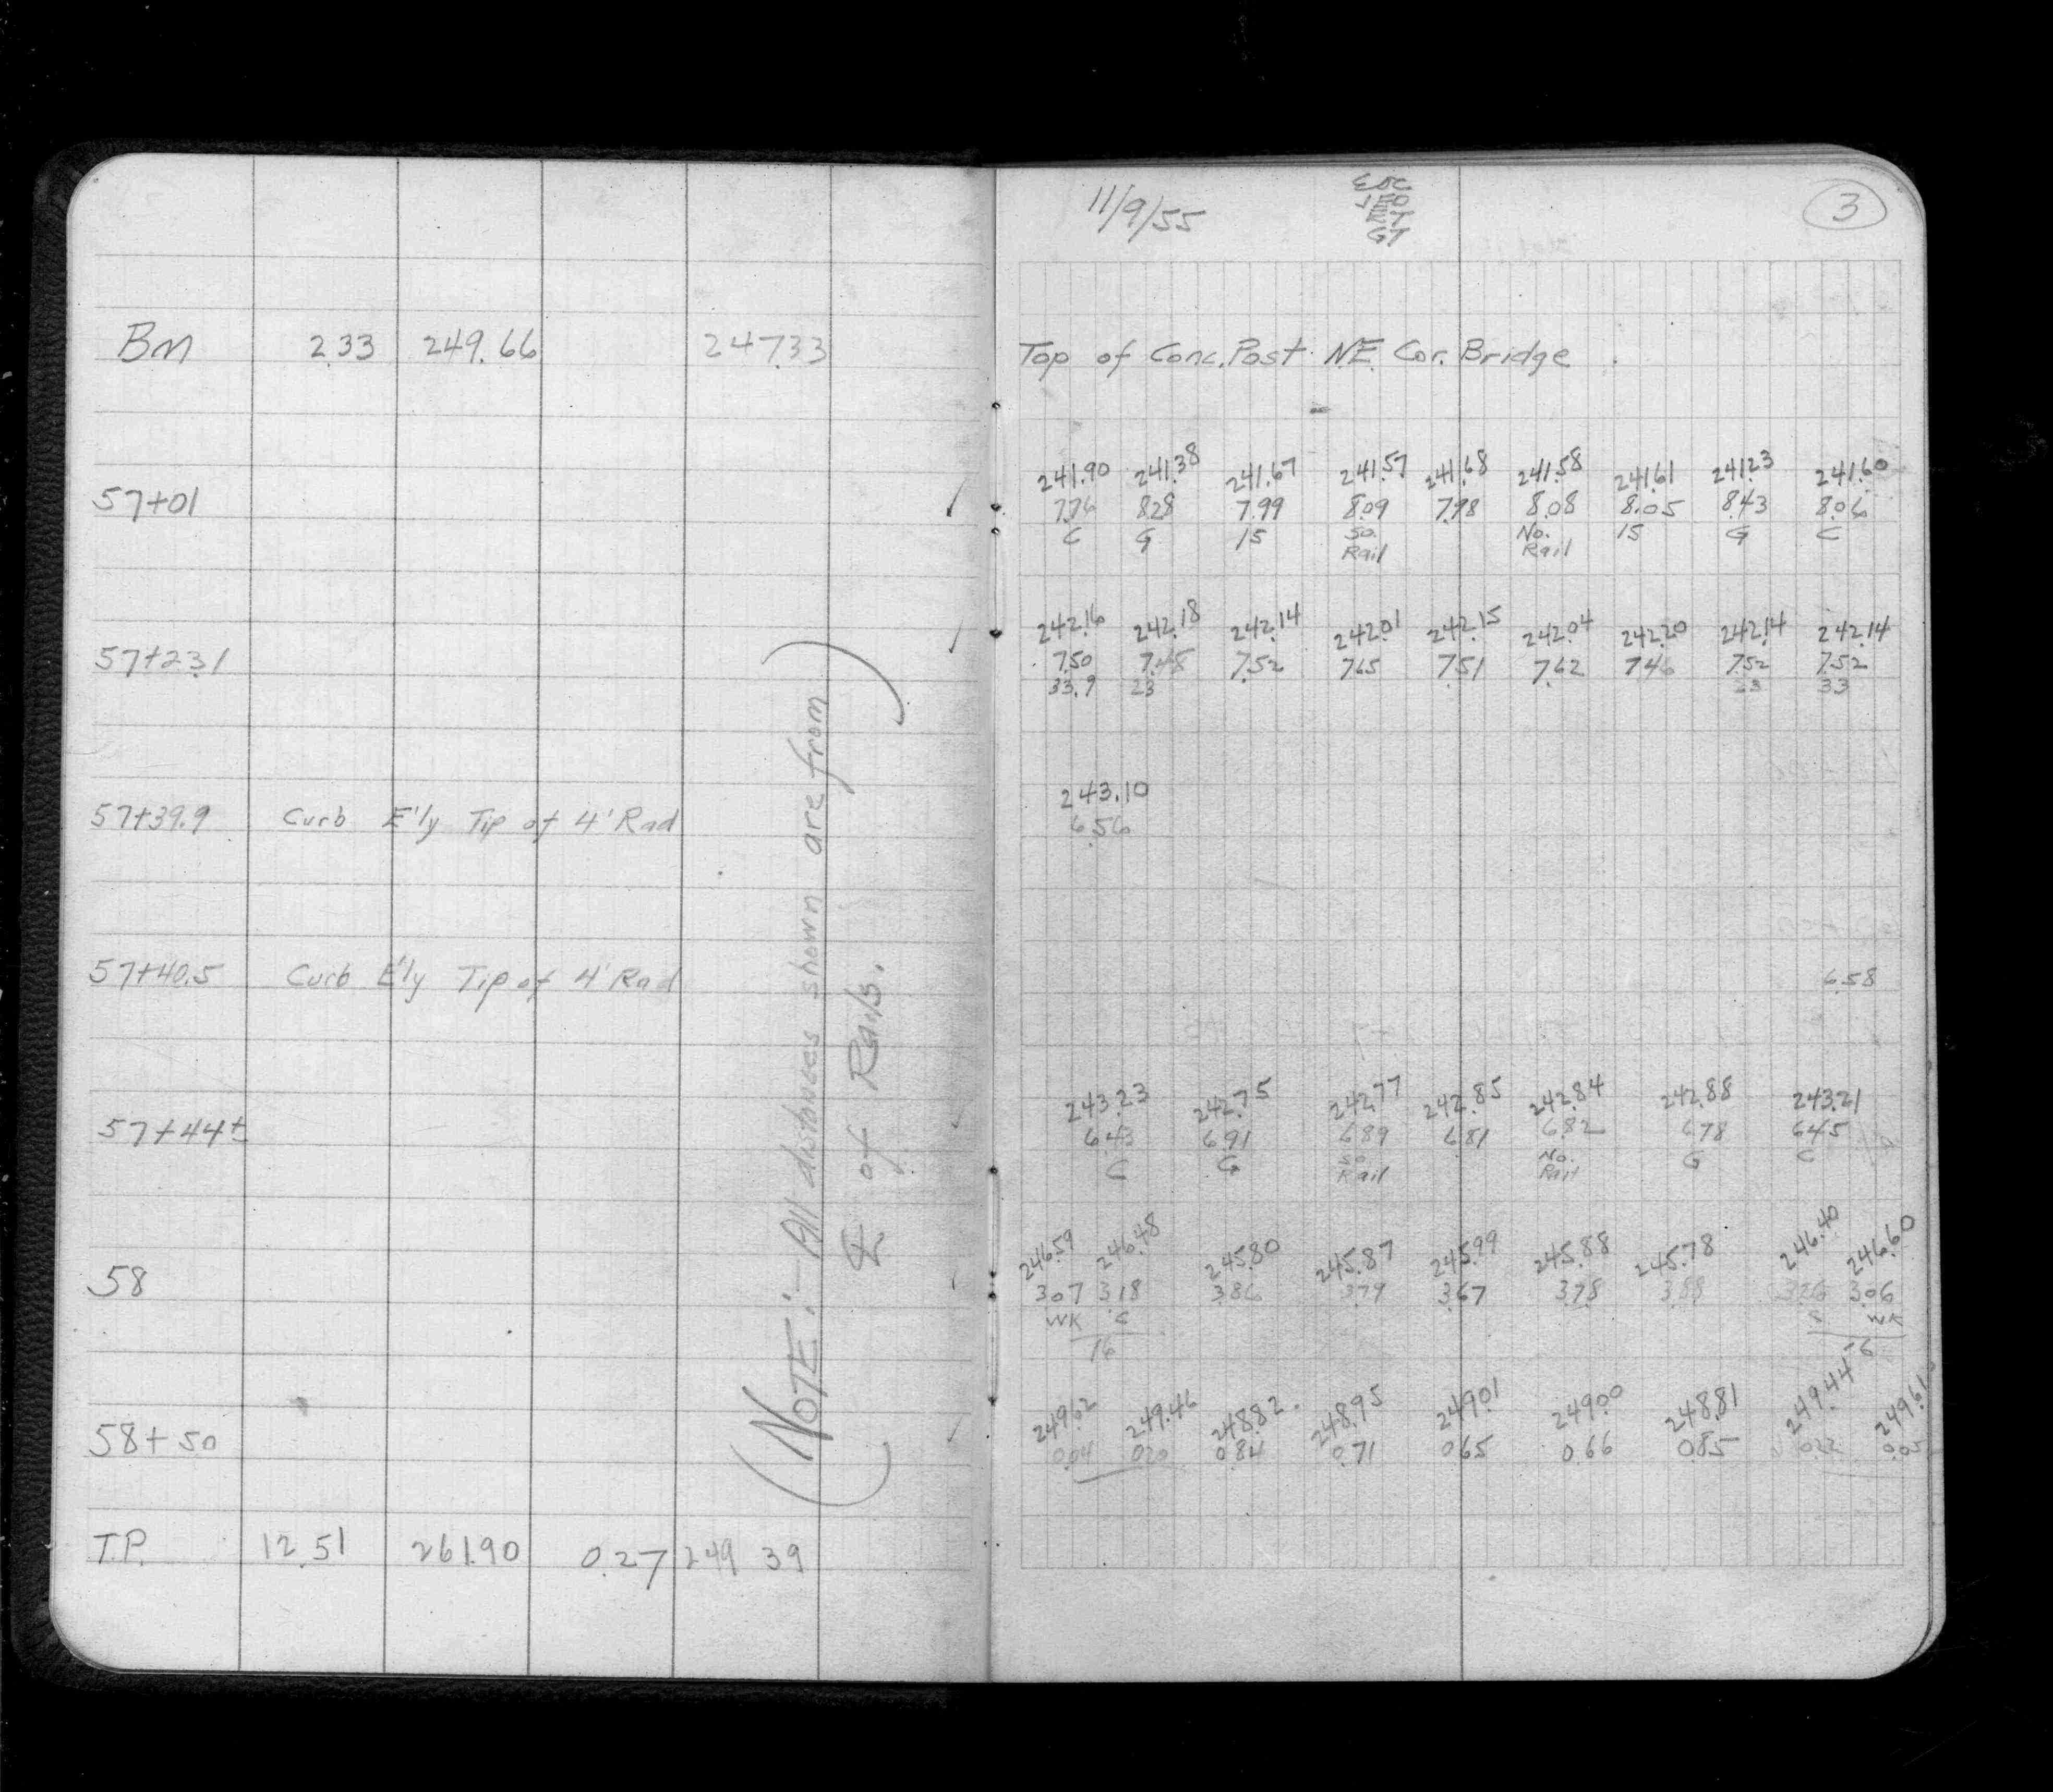 11/9/55
EOC
JEO
ET
GT
3
BM 2.33 249.66 247.33 Top of Conc. Post N.E. Cor. Bridge
241.90 241.38 241.67 241.57 241.68 241.58 241.61 241.23 241.60
57+01 7.76 8.28 7.99 8.09 7.98 8.08 8.05 8.43 8.06
C G 15 So. Rail No. Rail 15 G C
242.16 242.18 242.14 242.01 242.15 242.04 242.20 242.14 242.14
57+23.1 7.50 7.48 7.52 7.65 7.51 7.62 7.46 7.52 7.52
33.9 23 23 33
243.10
57+39.9 Curb E'ly Tip of 4' Rad 6.56
57+40.5 Curb E'ly Tip of 4' Rad 6.58
243.23 242.75 242.77 242.85 242.84 242.88 243.21
57+44± 6.43 6.91 6.89 6.81 6.82 6.78 6.45
C G So. Rail No. Rail G C
246.59 246.48 245.80 245.87 245.99 245.88 245.78 246.40 246.60
58 3.07 3.18 3.86 3.79 3.67 3.78 3.88 3.26 3.06
WK C C WK
16
249.62 249.46 248.82 248.95 249.01 249.00 248.81 249.44 249.61
58+50 0.04 0.20 0.84 0.71 0.65 0.66 0.85 0.22 0.05
T.P. 12.51 261.90 0.27 249.39
(NOTE:- All distances shown are from
℄ of Rails.)